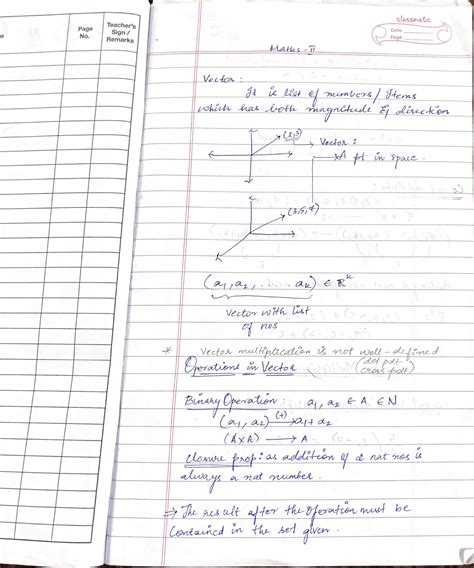 Page No.
Teacher's Sign / Remarks
classmate
Date
Page
Maths - II
Vector :
It is list of numbers / Items
which has both magnitude & direction
(2,3)
Vector :
A pt in space.
(3,5,7)
(a1, a2, ..... ak) ∈ R^k
Vector with list
of nos
* Vector multiplication is not well-defined
Operations in Vector
(dot pdt
cross pdt)
Binary Operation : a1, a2 ∈ A ∈ N
(a1, a2) (+)→ a1 + a2
(A×A) → A
Closure prop : as addition of 2 nat nos is
always a nat number.
⇒ The result after the operation must be
contained in the set given.